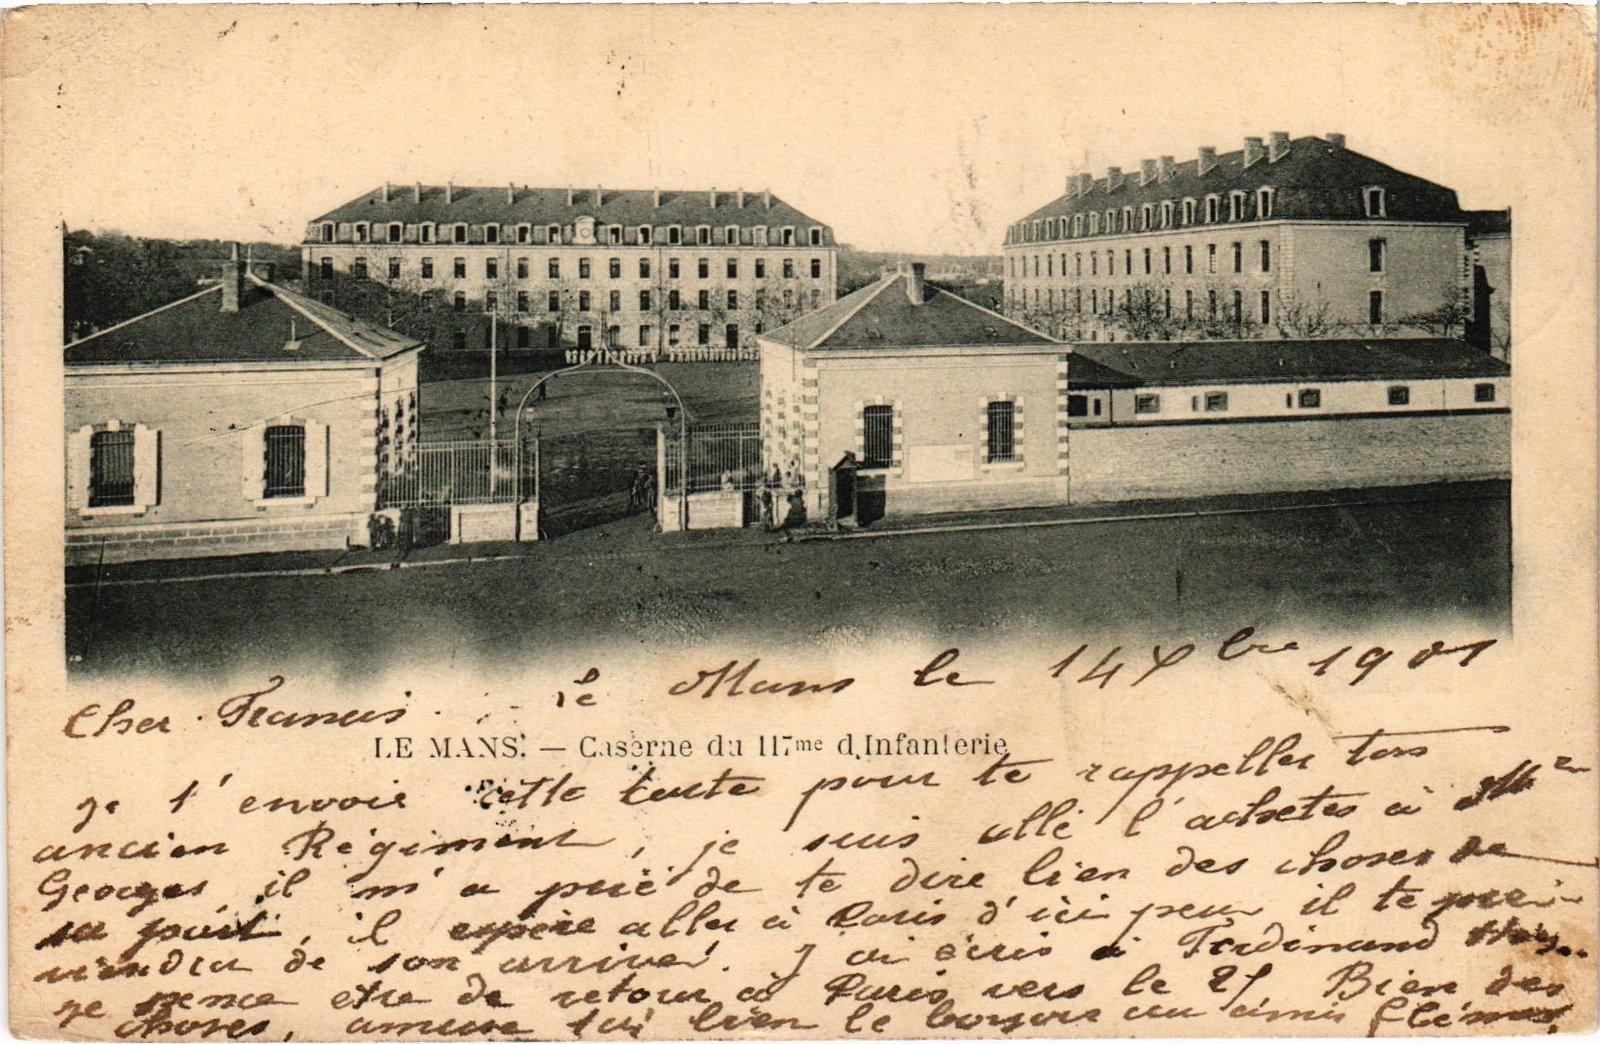 Le Mans le 14 Xbre 1901
Cher Francis
LE MANS. — Caserne du 117me d'Infanterie
je t'envoie cette carte pour te rappeller ton
ancien Régiment, je suis allé l'acheter à Mr
Georges il m'a prié de te dire bien des choses de
sa part, il espère aller à Paris d'ici peu il te pré
viendra de son arrivé. J'ai écris à Ferdinand
je pence etre de retour à Paris vers le 21 Bien des
choses, amuse toi bien le bonjour au amis